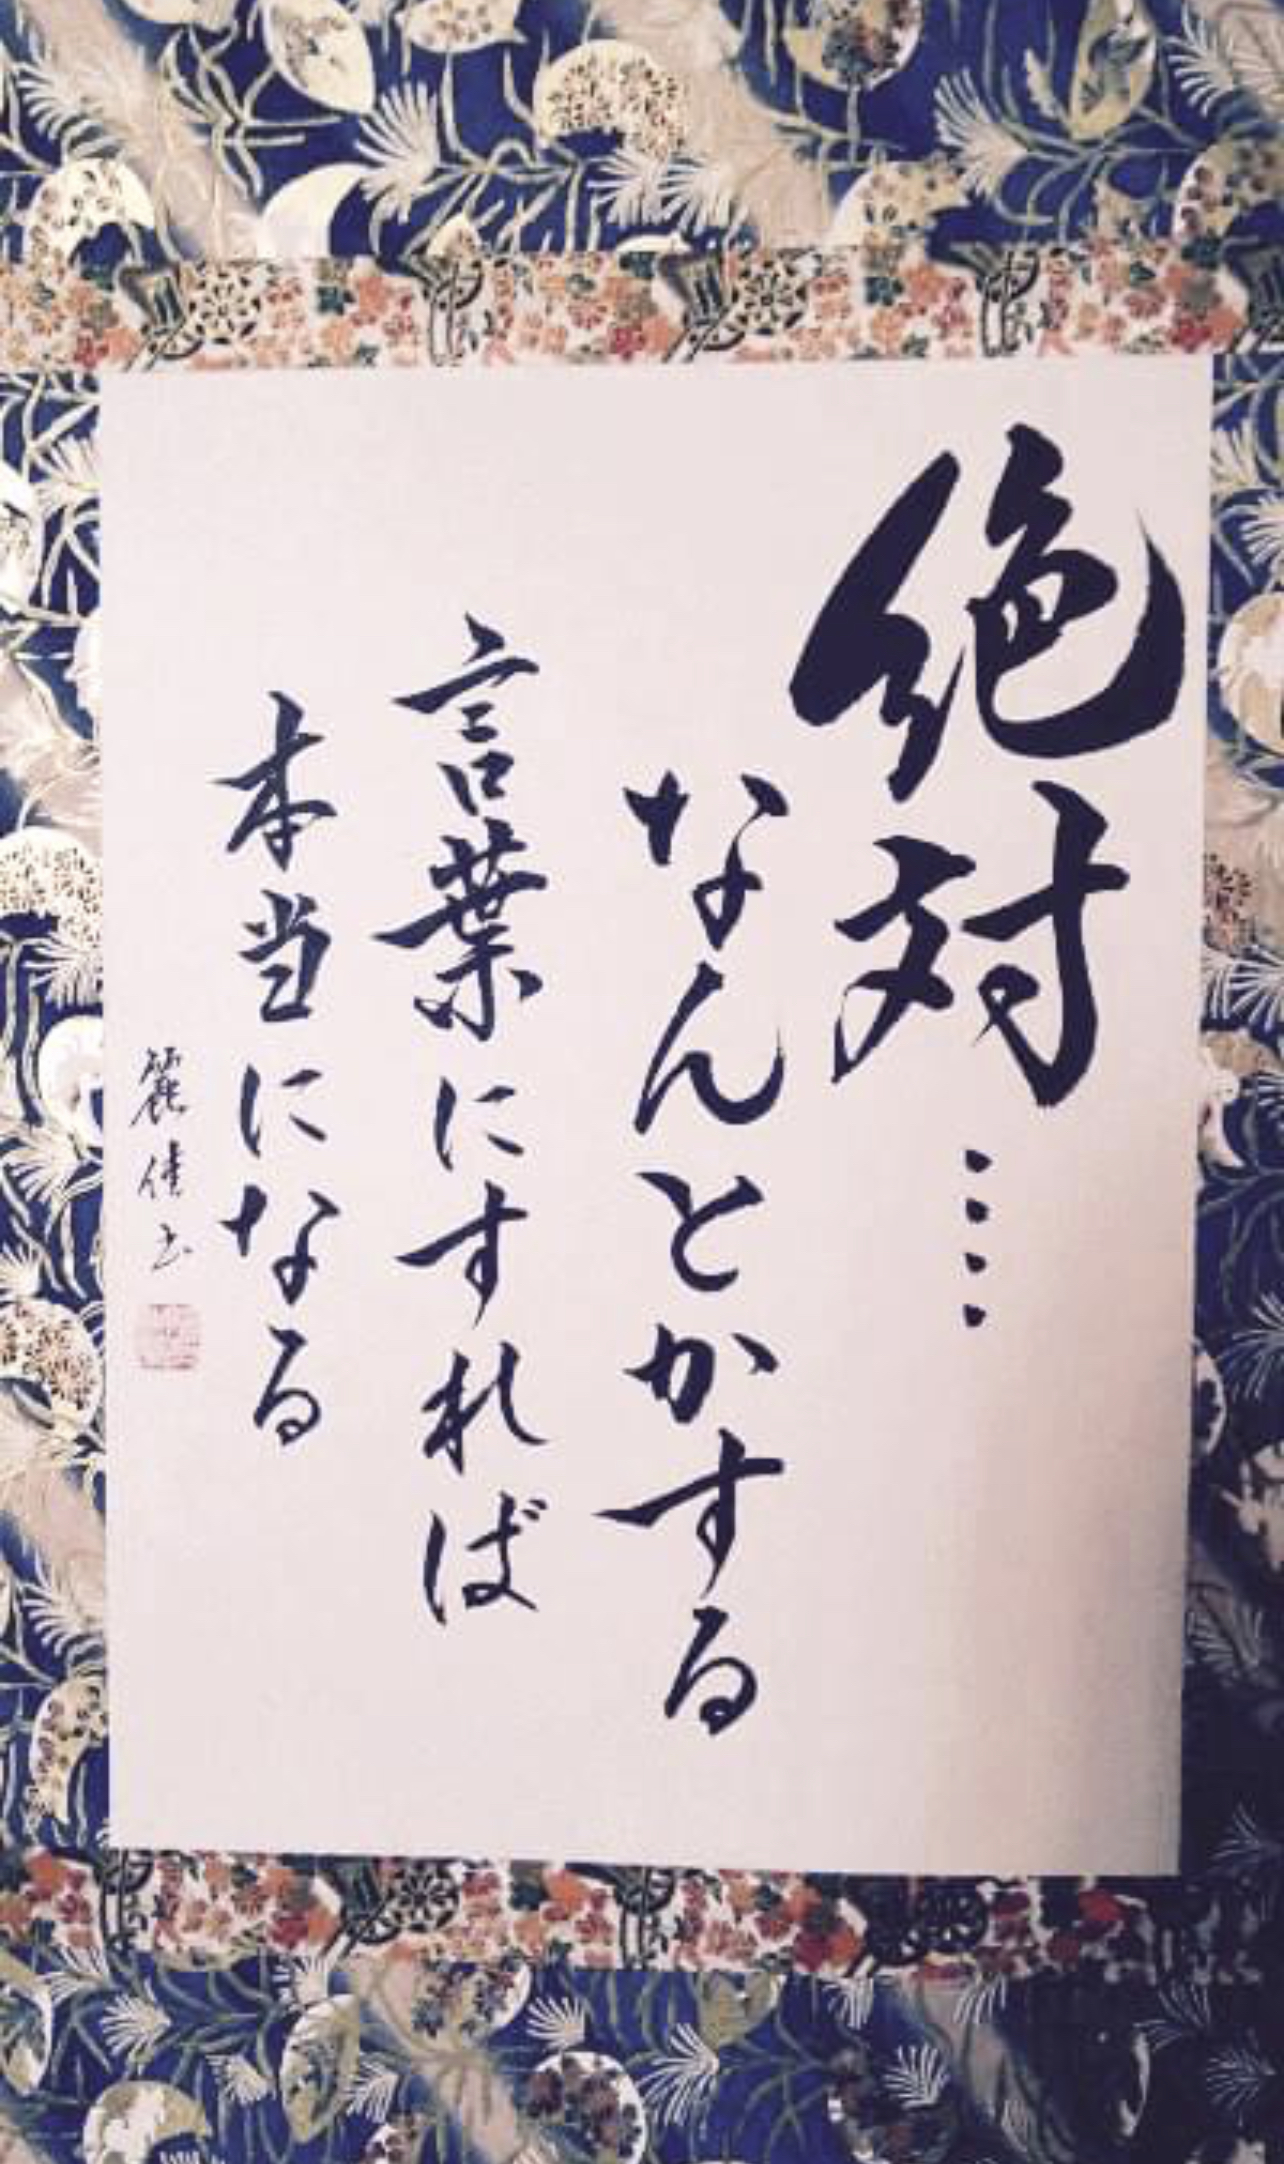 絶対····
なんとかする
言葉にすれば
本当になる
佳书